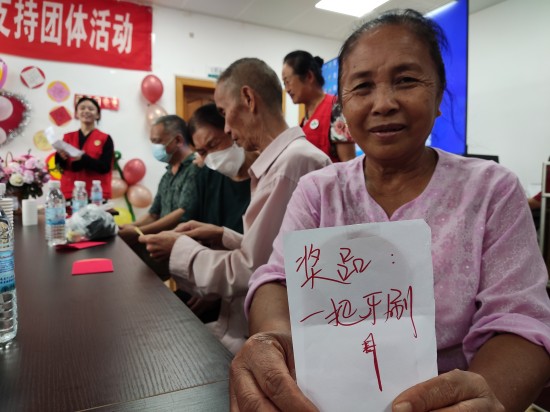 支持团体活动
奖品：
一把牙刷